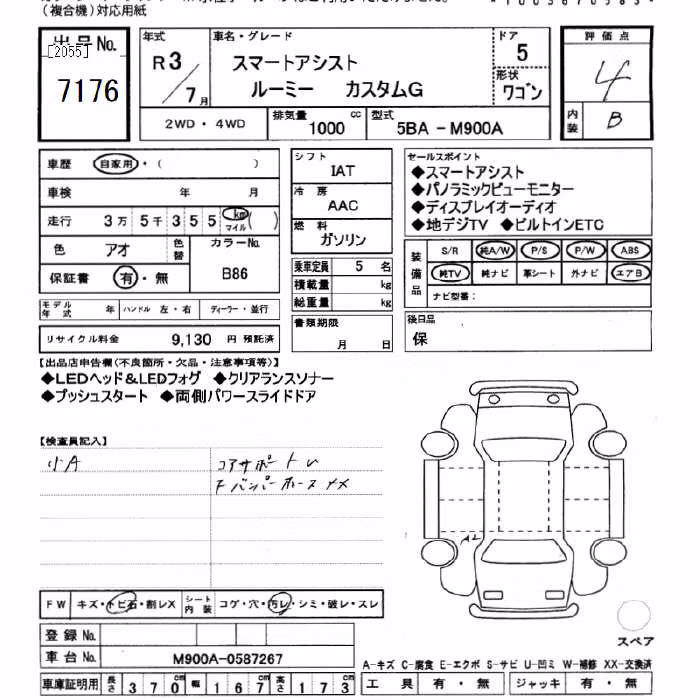 (複合機)対応用紙
出品No.
[2055]
7176
年式
R3/7月
車名・グレード
スマートアシスト
ルーミー カスタムG
ドア
5
形状
ワゴン
評価点
4
内装
B
2WD・4WD
排気量
1000 cc
型式
5BA-M900A
車歴 自家用・( )
車検 年 月
走行 3万5千355 km マイル ( )
色 アオ
色替
カラーNo.
B86
保証書 有・無
モデル年式 年 ハンドル 左・右 ディーラー・並行
リサイクル料金 9,130 円 預託済
シフト
IAT
冷房
AAC
燃料
ガソリン
乗車定員 5 名
積載量 kg
総重量 kg
書類期限
月 日
セールスポイント
◆スマートアシスト
◆パノラミックビューモニター
◆ディスプレイオーディオ
◆地デジTV ◆ビルトインETC
装備品
S/R 純A/W P/S P/W ABS
純TV 純ナビ 革シート 外ナビ エアB
ナビ型番:
後日品
保
【出品店申告欄(不良箇所・欠品・注意事項等)】
◆LEDヘッド&LEDフォグ ◆クリアランスソナー
◆プッシュスタート ◆両側パワースライドドア
【検査員記入】
小A
コアサポートレ
FバンパーホースXX
A2
FW キズ・トビ石・割レX
シート内装 コゲ・穴・汚レ・シミ・破レ・スレ
登録No.
車台No. M900A-0587267
車庫証明用 長さ 370cm 幅 167cm 高さ 173cm
スペア
A-キズ C-腐食 E-エクボ S-サビ U-凹ミ W-補修 XX-交換済
工具 有・無 ジャッキ 有・無